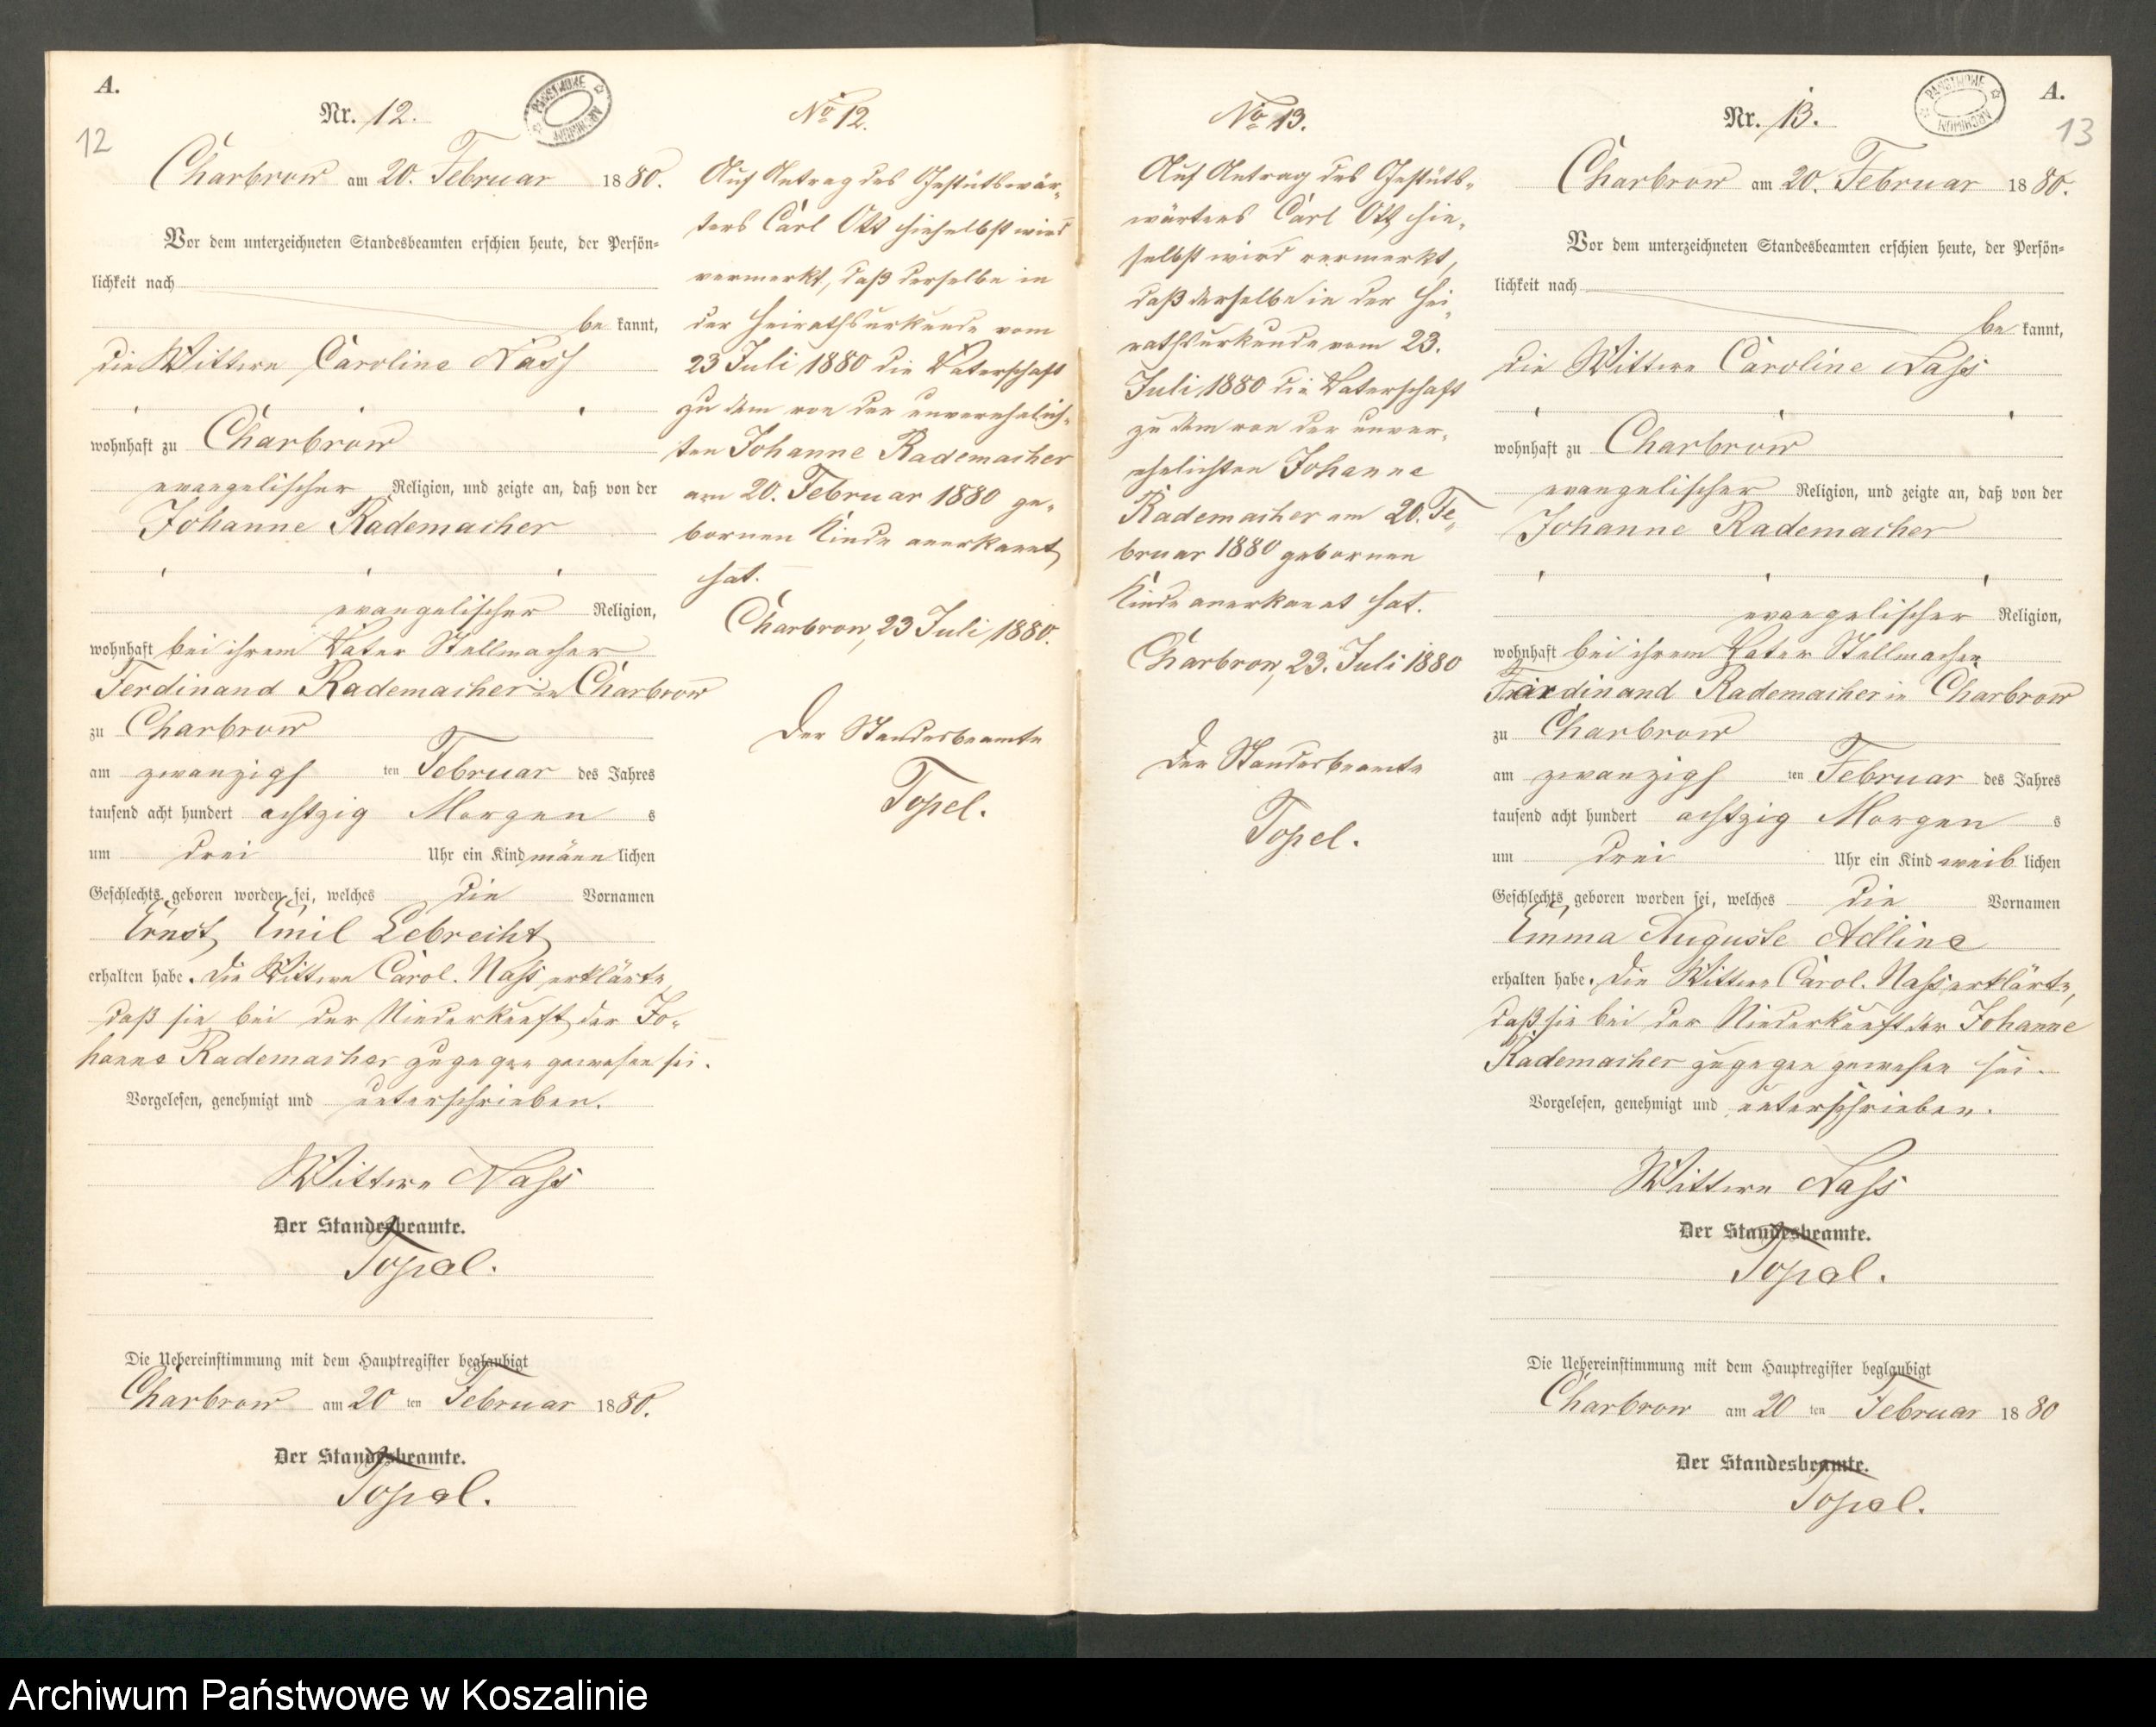 A.
Nr. 12.
12
PAŃSTWOWE ARCHIWUM
Charbrow am 20. Februar 1880.
Vor dem unterzeichneten Standesbeamten erschien heute, der Persön=
lichkeit nach
be kannt,
die Wittwe Caroline Nass
wohnhaft zu Charbrow
evangelischer Religion, und zeigte an, daß von der
Johanne Rademacher
evangelischer Religion,
wohnhaft bei ihrem Vater Stellmacher
Ferdinand Rademacher in Charbrow
zu Charbrow
am zwanzigs ten Februar des Jahres
tausend acht hundert achtzig Morgen s
um drei Uhr ein Kind männ lichen
Geschlechts geboren worden sei, welches die Vornamen
Ernst Emil Lebrecht
erhalten habe. Die Wittwe Carol. Nass erklärte,
daß sie bei der Niederkunft der Jo-
hanne Rademacher zugegen gewesen sei.
Vorgelesen, genehmigt und unterschrieben.
Wittwe Nass
Der Standesbeamte.
Topel.
Die Uebereinstimmung mit dem Hauptregister beglaubigt
Charbrow am 20 ten Februar 1880.
Der Standesbeamte.
Topel.
No 12.
Auf Antrag des Gestütswär-
ters Carl Ott hieselbst wird
vermerkt, daß derselbe in
der Heirathsurkunde vom
23 Juli 1880 die Vaterschaft
zu dem von der unverehelich-
ten Johanne Rademacher
am 20. Februar 1880 ge-
bornen Kinde anerkannt
hat.
Charbrow, 23 Juli 1880.
Der Standesbeamte
Topel.
No 13.
Auf Antrag des Gestüts-
wärters Carl Ott hie-
selbst wird vermerkt,
daß derselbe in der Hei-
rathsurkunde vom 23.
Juli 1880 die Vaterschaft
zu dem von der unver-
ehelichten Johanne
Rademacher am 20. Fe-
bruar 1880 gebornen
Kinde anerkannt hat.
Charbrow, 23. Juli 1880
Der Standesbeamte
Topel.
A.
Nr. 13.
13
PAŃSTWOWE ARCHIWUM
Charbrow am 20. Februar 1880.
Vor dem unterzeichneten Standesbeamten erschien heute, der Persön=
lichkeit nach
be kannt,
die Wittwe Caroline Nass
wohnhaft zu Charbrow
evangelischer Religion, und zeigte an, daß von der
Johanne Rademacher
evangelischer Religion,
wohnhaft bei ihrem Vater Stellmacher
Ferdinand Rademacher in Charbrow
zu Charbrow
am zwanzigs ten Februar des Jahres
tausend acht hundert achtzig Morgen s
um drei Uhr ein Kind weib lichen
Geschlechts geboren worden sei, welches die Vornamen
Emma Auguste Adline
erhalten habe. Die Wittwe Carol. Nass erklärte,
daß sie bei der Niederkunft der Johanne
Rademacher zugegen gewesen sei.
Vorgelesen, genehmigt und unterschrieben.
Wittwe Nass
Der Standesbeamte.
Topel.
Die Uebereinstimmung mit dem Hauptregister beglaubigt
Charbrow am 20 ten Februar 1880
Der Standesbeamte.
Topel.
Archiwum Państwowe w Koszalinie